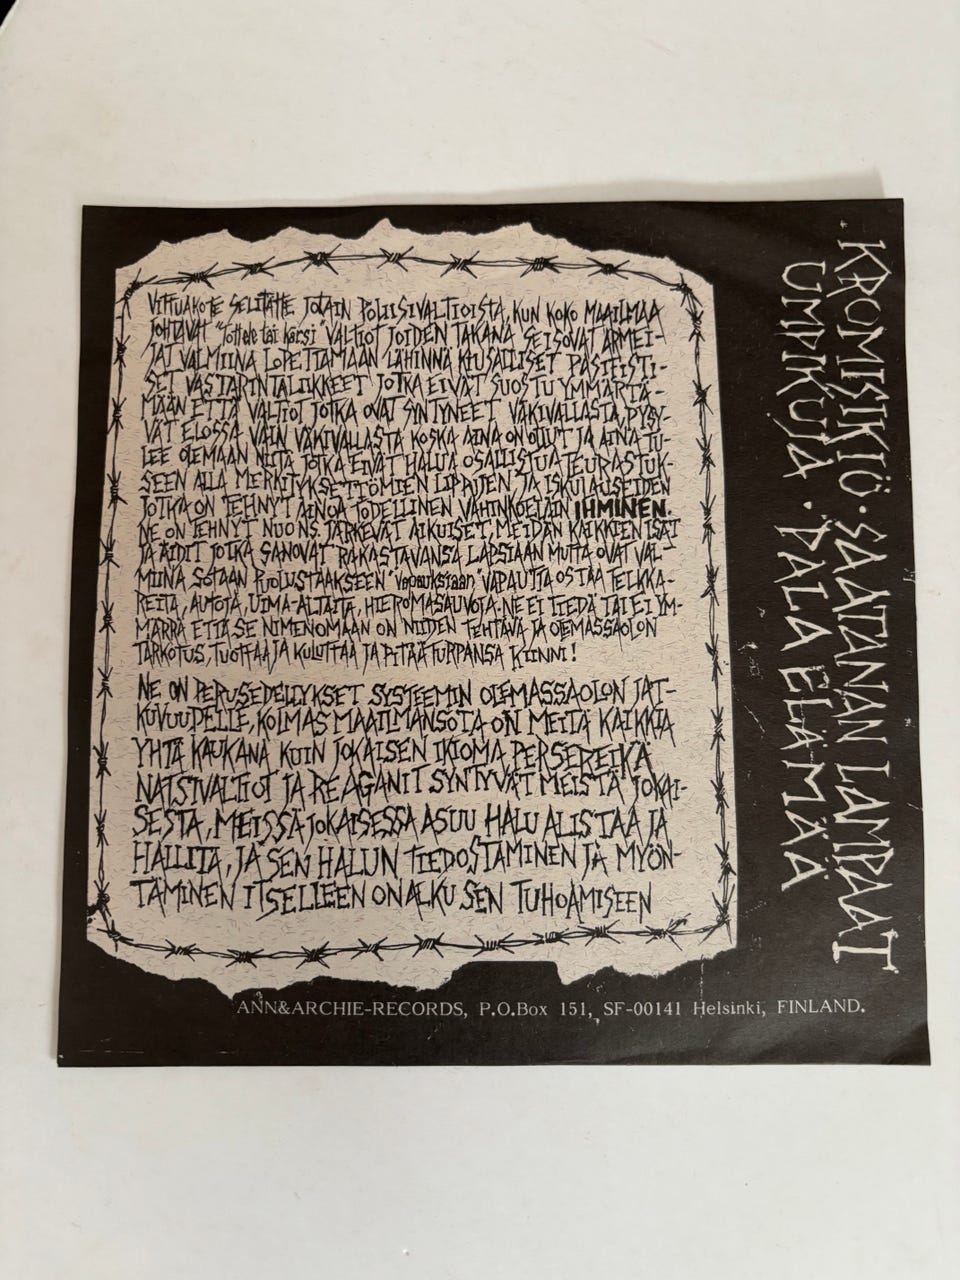 VITTUAKOTE SELITÄTTE JOTAIN POLIISIVALTIOISTA, KUN KOKO MAAILMAA
JOHTAVAT "Tottele tai kärsi" VALTIOT JOIDEN TAKANA SEISOVAT ARMEI-
JAT VALMIINA LOPETTAMAAN LÄHINNÄ KIUSALLISET PASIFISTI-
SET VASTARINTALIIKKEET JOTKA EIVÄT SUOSTU YMMÄRTÄ-
MÄÄN ETTÄ VALTIOT JOTKA OVAT SYNTYNEET VÄKIVALLASTA, PYSY-
VÄT ELOSSA VAIN VÄKIVALLASTA KOSKA AINA ON OLLUT JA AINA TU-
LEE OLEMAAN NIITÄ JOTKA EIVÄT HALUA OSALLISTUA TEURASTUK-
SEEN ALLA MERKITYKSETTÖMIEN LIPPUJEN JA ISKULAUSEIDEN
JOTKA ON TEHNYT AINOA TODELLINEN VAHINKOELÄIN IHMINEN.
NE ON TEHNYT NUO NS. JÄRKEVÄT AIKUISET, MEIDÄN KAIKKIEN ISÄT
JA ÄIDIT JOTKA SANOVAT RAKASTAVANSA LAPSIAAN MUTTA OVAT VAL-
MIINA SOTAAN PUOLUSTAAKSEEN "vapauksiaan" VAPAUTTA OSTAA TELKKA-
REITA, AUTOJA, UIMA-ALTAITA, HIEROMASAUVOJA. NE EI TIEDÄ TAI EI YM-
MÄRRÄ ETTÄ SE NIMENOMAAN ON NIIDEN TEHTÄVÄ JA OLEMASSAOLON
TARKOTUS, TUOTTAA JA KULUTTAA JA PITÄÄ TURPANSA KIINNI!
NE ON PERUSEDELLYKSET SYSTEEMIN OLEMASSAOLON JAT-
KUVUUDELLE, KOLMAS MAAILMANSOTA ON MEITÄ KAIKKIA
YHTÄ KAUKANA KUIN JOKAISEN IKIOMA PERSEREIKÄ
NATSIVALTIOT JA REAGANIT SYNTYVÄT MEISTÄ JOKAI-
SESTA, MEISSÄ JOKAISESSA ASUU HALU ALISTAA JA
HALLITA, JA SEN HALUN TIEDOSTAMINEN JA MYÖN-
TÄMINEN ITSELLEEN ON ALKU SEN TUHOAMISEEN
· KROMISIKIÖ · SAATANAN LAMPAAT
UMPIKUJA · PALA ELÄMÄÄ
ANN&ARCHIE-RECORDS, P.O.Box 151, SF-00141 Helsinki, FINLAND.